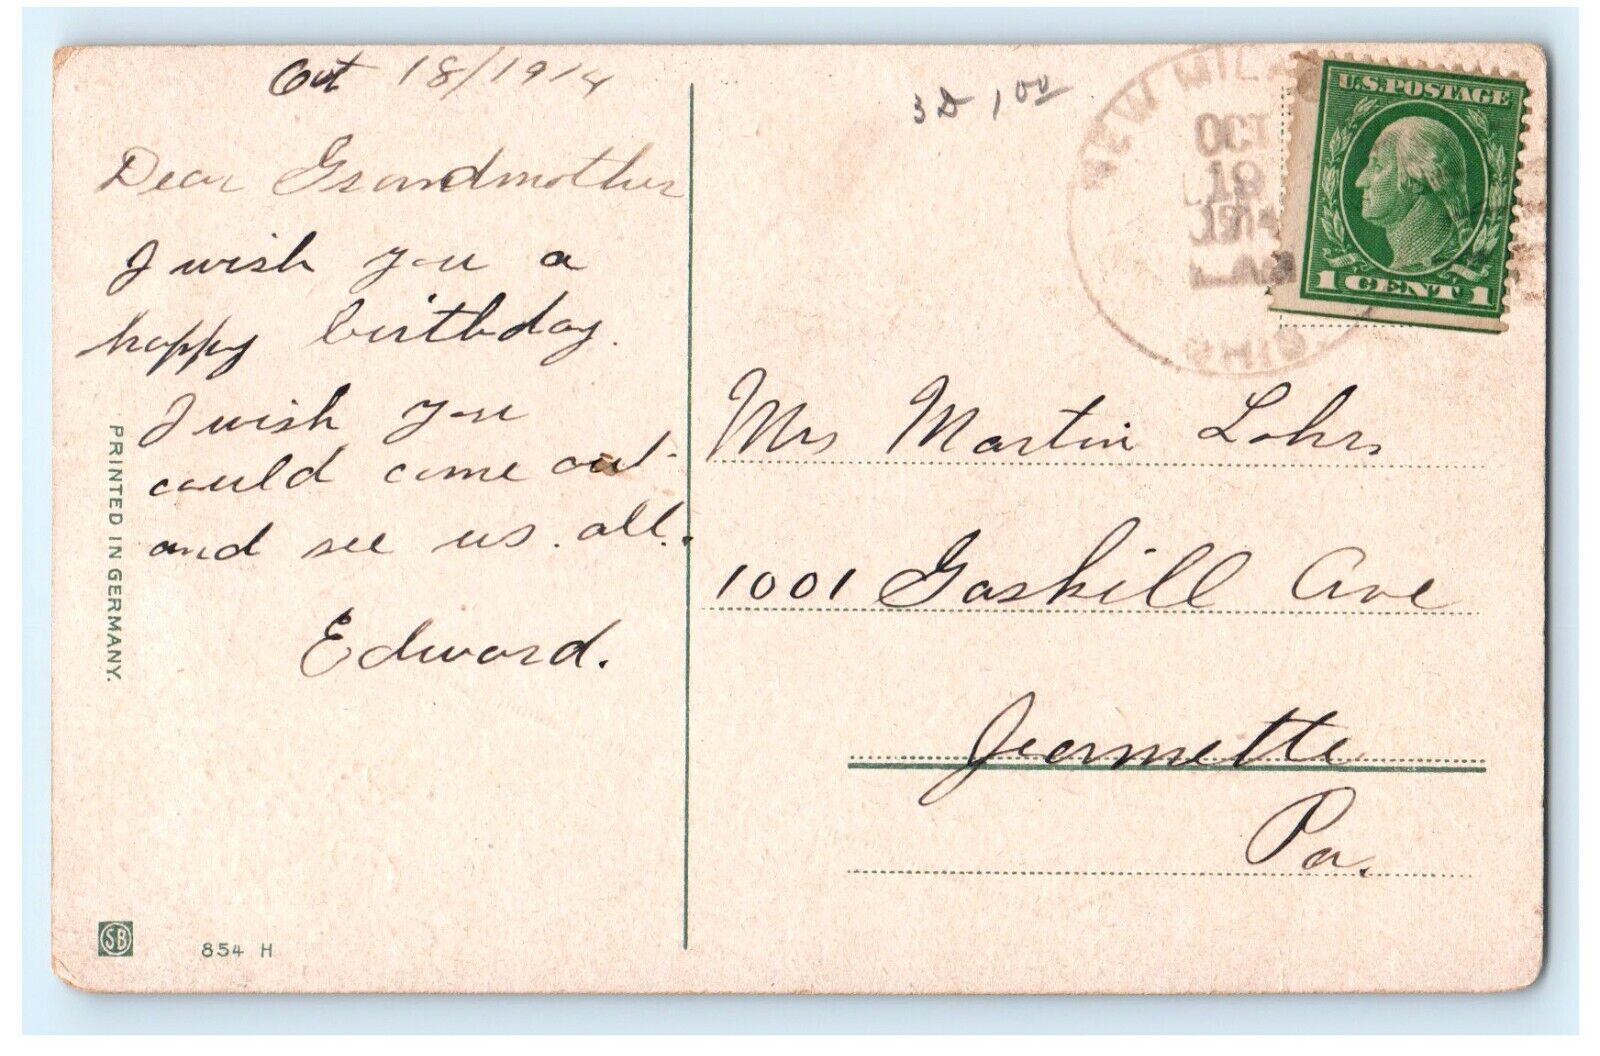 Oct 18/1914
Dear Grandmother
I wish you a
happy birthday.
I wish you
could come out
and see us all.
Edward.
PRINTED IN GERMANY.
SB
854 H
3D 1 00
NEW MILFORD
OCT
19
1914
OHIO
U.S. POSTAGE
1 CENT 1
Mrs Martin Lohr
1001 Gaskill Ave
Jeannette
Pa.